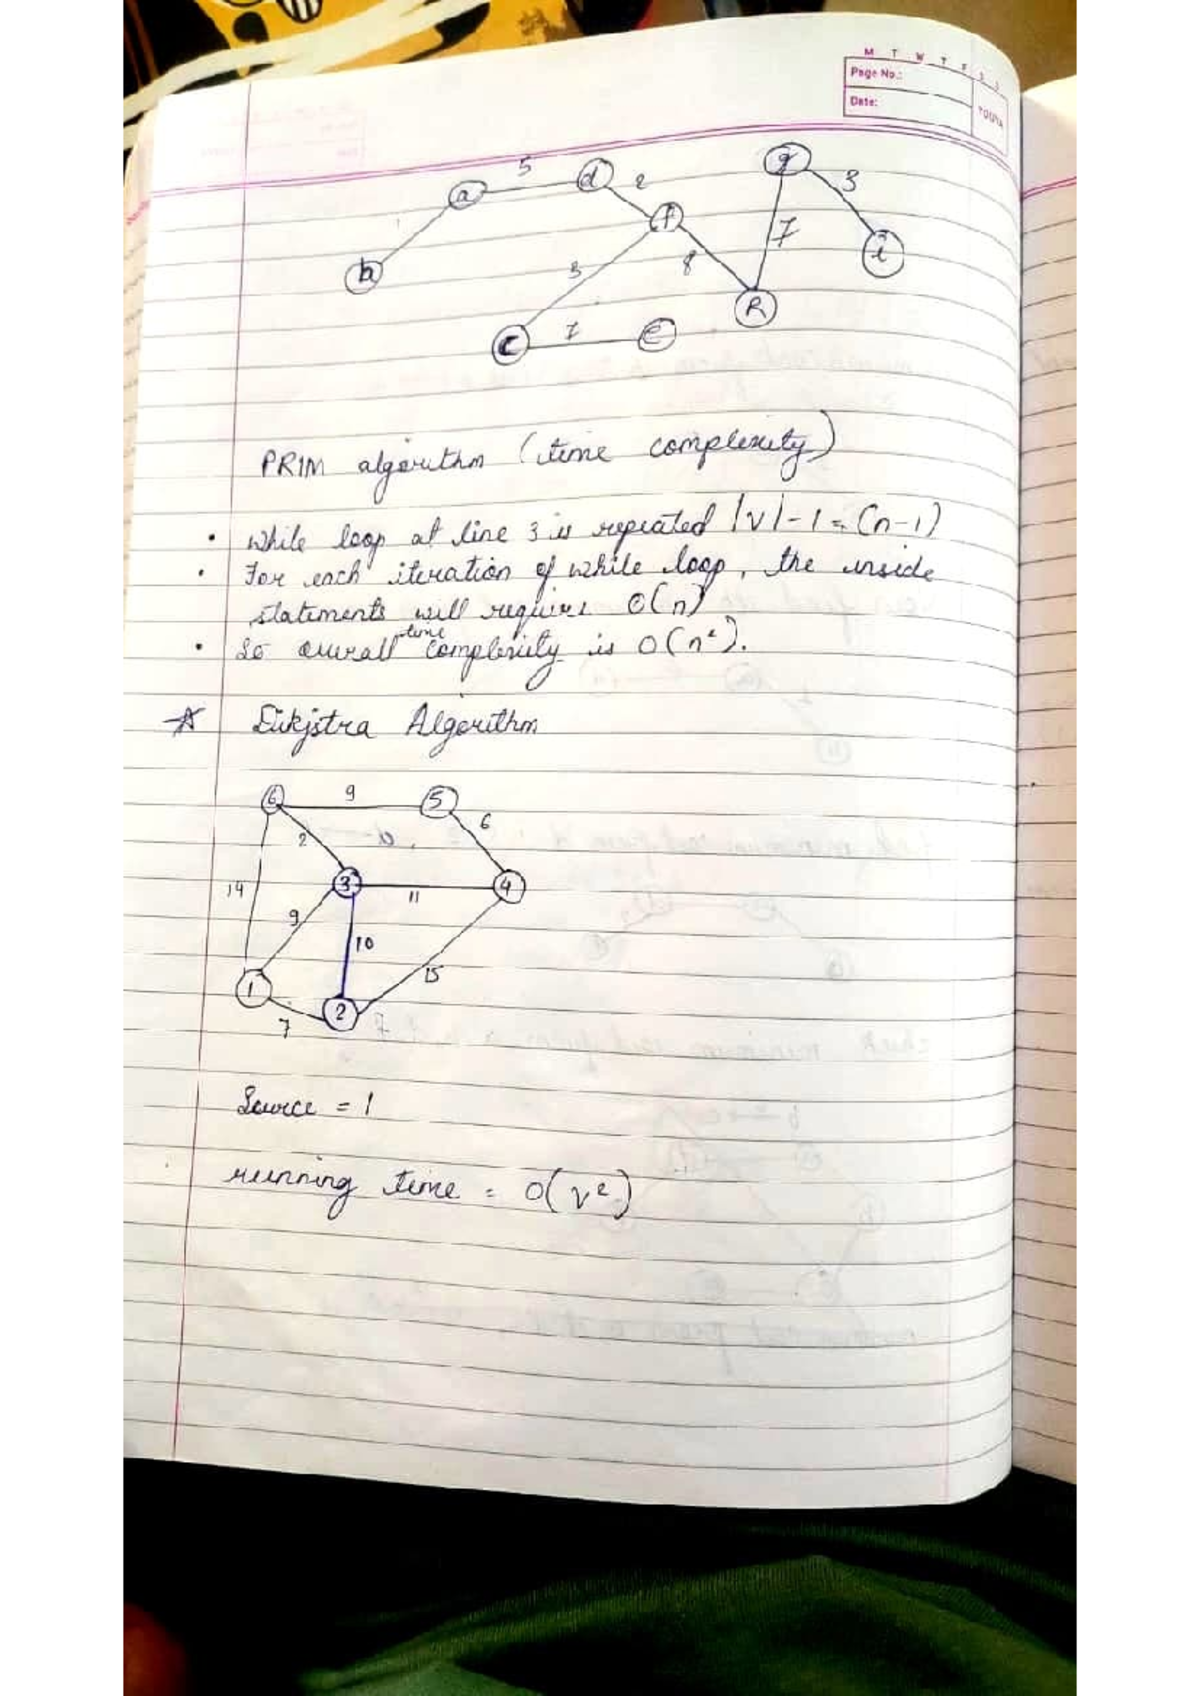 M T W T F S S
Page No.:
Date:
YOUVA
a 5 d 2 g 3
f 7 i
b 3 8
R
c 7 e
PRIM algorithm (time complexity)
• While loop at line 3 is repeated |v|-1 = (n-1)
• For each iteration of while loop, the inside
statements will requires O(n)
• So overall time complexity is O(n²).
☆ Dikjstra Algorithm
6 9 5
2 6
14 3 11 4
9 10
1 15
7 2
Source = 1
running time = O(v²)